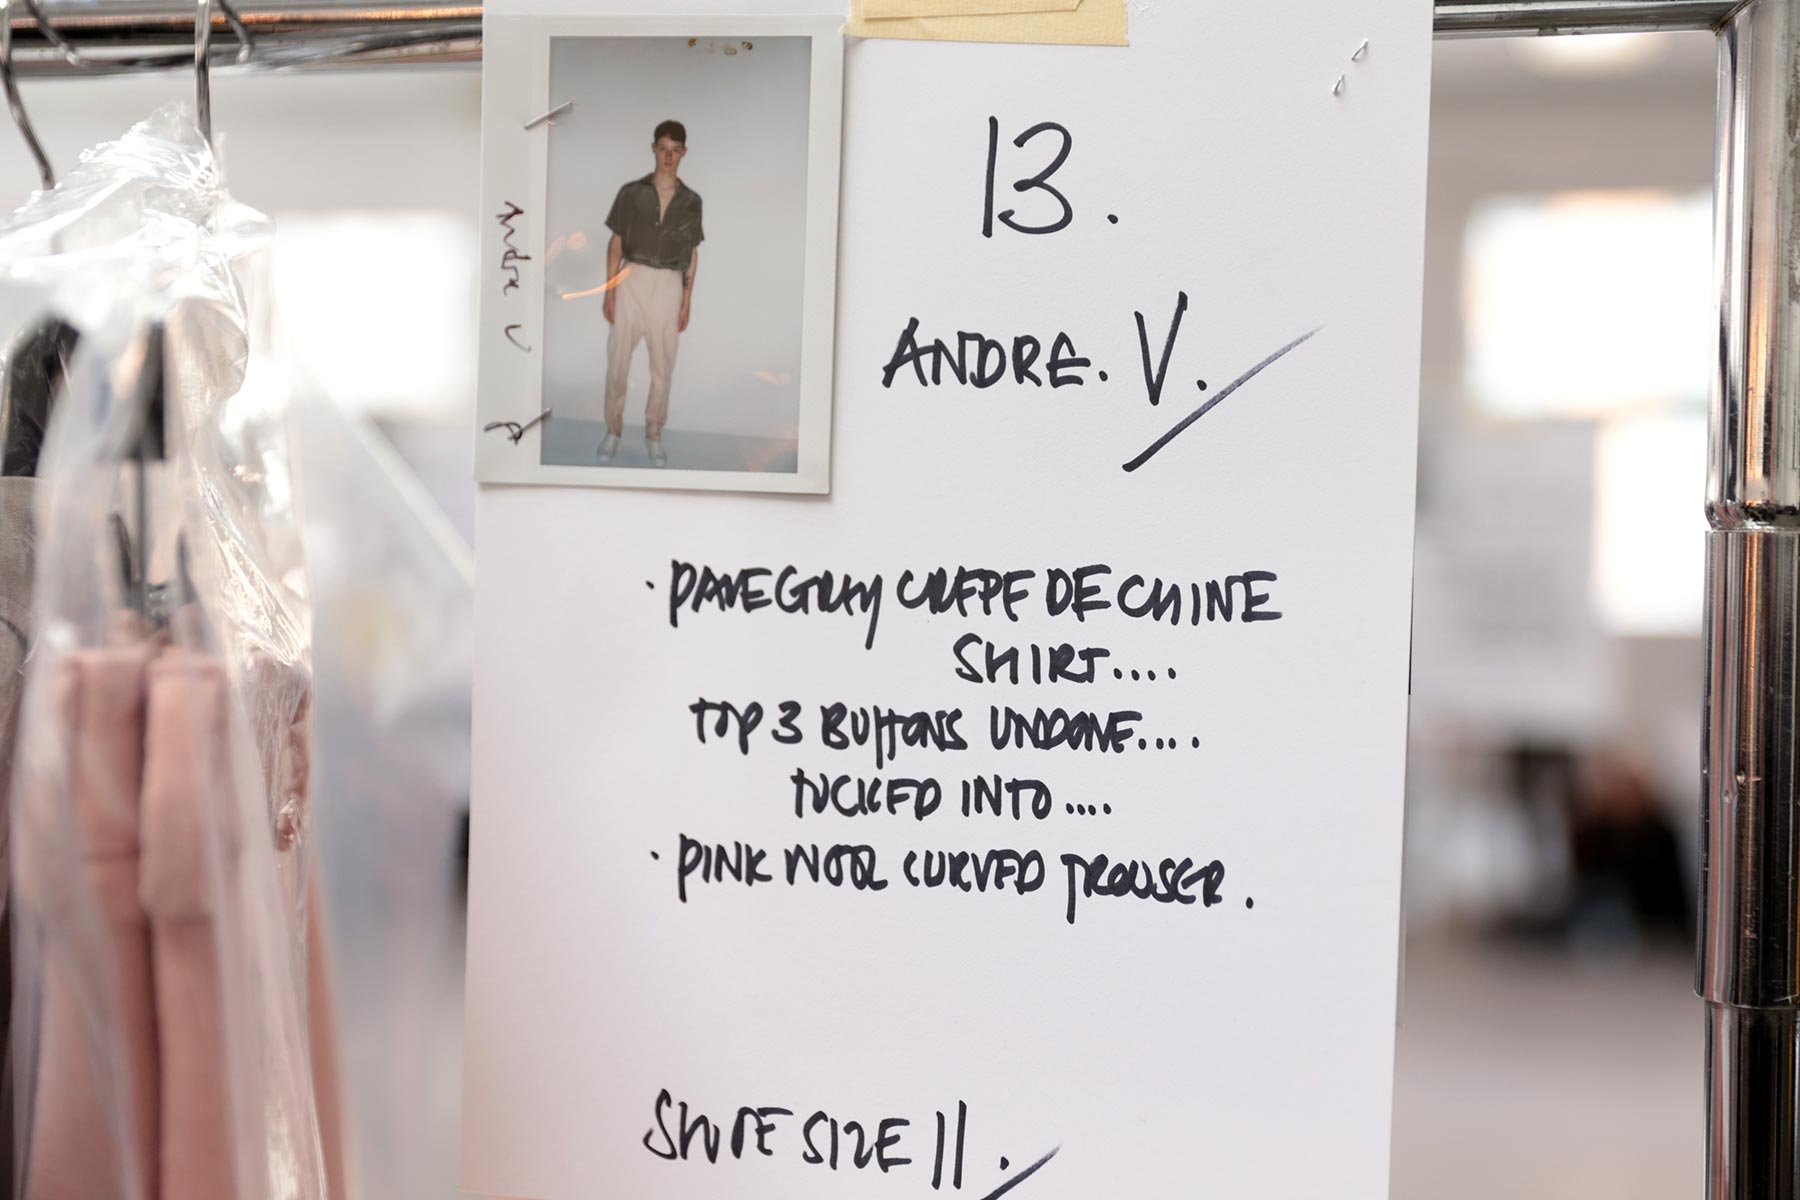 13.
ANDRE. V.
Andre V
• PAVEGRAY CREPE DE CHINE
SHIRT....
TOP 3 BUTTONS UNDONE....
TUCKED INTO....
• PINK WOOL CURVED TROUSER.
SHOE SIZE 11.